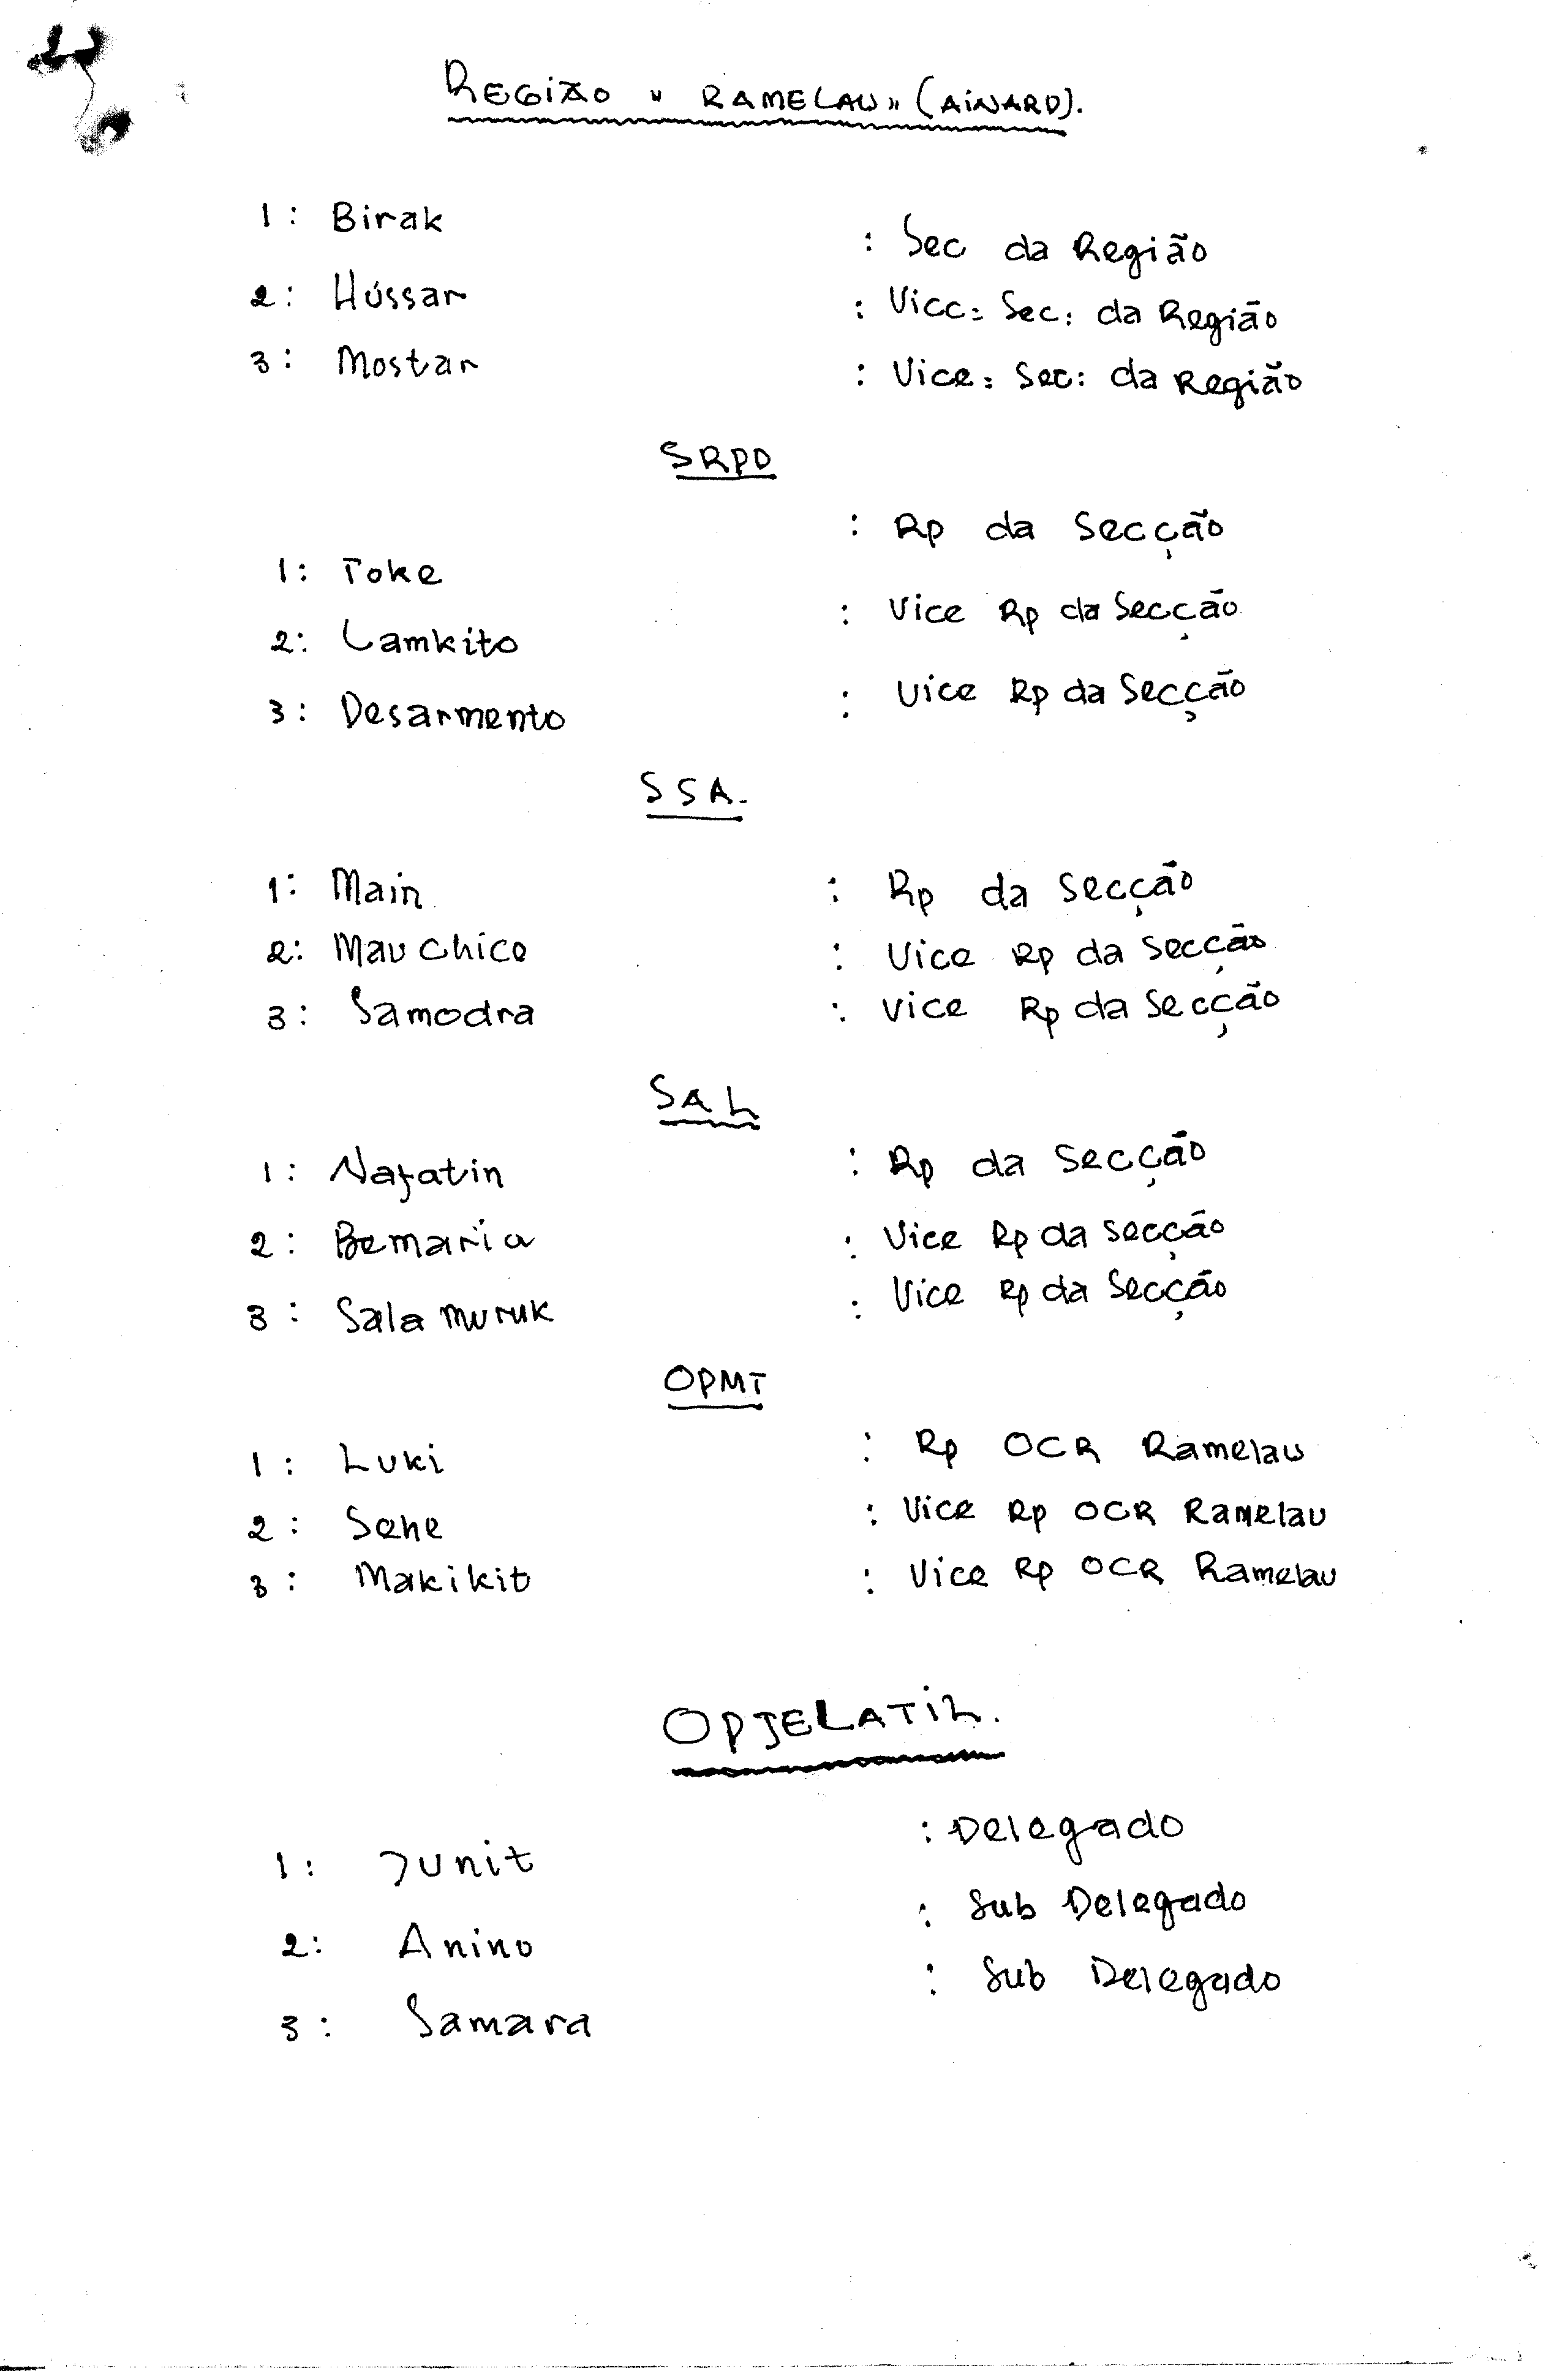 REGIÃO " RAMELAU" (AINARO).
1: Birak : Sec da Região
2: Hússar : Vice: Sec: da Região
3: Mostar : Vice: Sec: da Região
SRPD
1: Toke : Rp da Secção
2: Lamkito : Vice Rp da Secção
3: Desarmento : Vice Rp da Secção
SSA.
1: Main : Rp da Secção
2: Mau Chico : Vice Rp da Secção
3: Samodra : Vice Rp da Secção
SAL
1: Nafatin : Rp da Secção
2: Bemaria : Vice Rp da Secção
3: Sala muruk : Vice Rp da Secção
OPMT
1: Luki : Rp OCR Ramelau
2: Sehe : Vice Rp OCR Ramelau
3: Makikit : Vice Rp OCR Ramelau
OPJELATIL.
1: Junit : Delegado
2: Anino : Sub Delegado
3: Samara : Sub Delegado